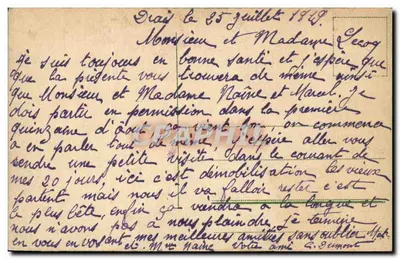 Drais le 25 juillet 1919
Monsieur et Madame Lecoq
je suis toujours en bonne santé et j'espère que
que la présente vous trouvera de même ainsi
que Monsieur et Madame Naine et Marcel. Je
dois partir en permission dans la première
quinzaine d'août on commence
a en parler tout de aller vous
rendre une petite visite, dans le courant de
mes 20 jours, ici c'est démobilisation les vieux
partent mais nous il va falloir rester c'est
le plus bête, enfin ça viendra a la longue et
nous n'avons pas a nous plaindre, je termine
en vous envoyant mes meilleures amitiés sans oublier
et Mme Naine Votre ami G. Dumont
CPAPHIL